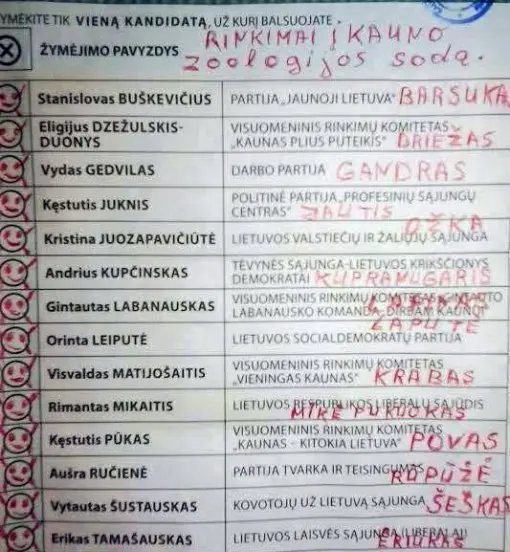 YMĖKITE TIK VIENĄ KANDIDATĄ, UŽ KURĮ BALSUOJATE.
ŽYMĖJIMO PAVYZDYS
RINKIMAI Į KAUNO
zoologijos sodą.
Stanislovas BUŠKEVIČIUS PARTIJA „JAUNOJI LIETUVA“ BARSUKA
Eligijus DZEŽULSKIS-
DUONYS
VISUOMENINIS RINKIMŲ KOMITETAS
„KAUNAS PLIUS PUTEIKIS“ DRIEŽAS
Vydas GEDVILAS DARBO PARTIJA GANDRAS
Kęstutis JUKNIS
POLITINĖ PARTIJA „PROFESINIŲ SĄJUNGŲ
CENTRAS“ JAUTIS
OŽKA
Kristina JUOZAPAVIČIŪTĖ LIETUVOS VALSTIEČIŲ IR ŽALIŲJŲ SĄJUNGA
Andrius KUPČINSKAS
TĖVYNĖS SĄJUNGA-LIETUVOS KRIKŠČIONYS
DEMOKRATAI KUPRANUGARIS
Gintautas LABANAUSKAS
VISUOMENINIS RINKIMŲ KOMITETAS „GINTAUTO
LABANAUSKO KOMANDA „DIRBAM KAUNUI“
LAPUTĖ
Orinta LEIPUTĖ LIETUVOS SOCIALDEMOKRATŲ PARTIJA
Visvaldas MATIJOŠAITIS
VISUOMENINIS RINKIMŲ KOMITETAS
„VIENINGAS KAUNAS“ KRABAS
Rimantas MIKAITIS LIETUVOS RESPUBLIKOS LIBERALŲ SĄJŪDIS
MIKĖ PUKUOKAS
Kęstutis PŪKAS
VISUOMENINIS RINKIMŲ KOMITETAS
„KAUNAS - KITOKIA LIETUVA“ POVAS
Aušra RUČIENĖ PARTIJA TVARKA IR TEISINGUMAS RUPŪŽĖ
Vytautas ŠUSTAUSKAS KOVOTOJŲ UŽ LIETUVĄ SĄJUNGA ŠEŠKAS
Erikas TAMAŠAUSKAS LIETUVOS LAISVĖS SĄJUNGA (LIBERALAI)
ERIUKAS